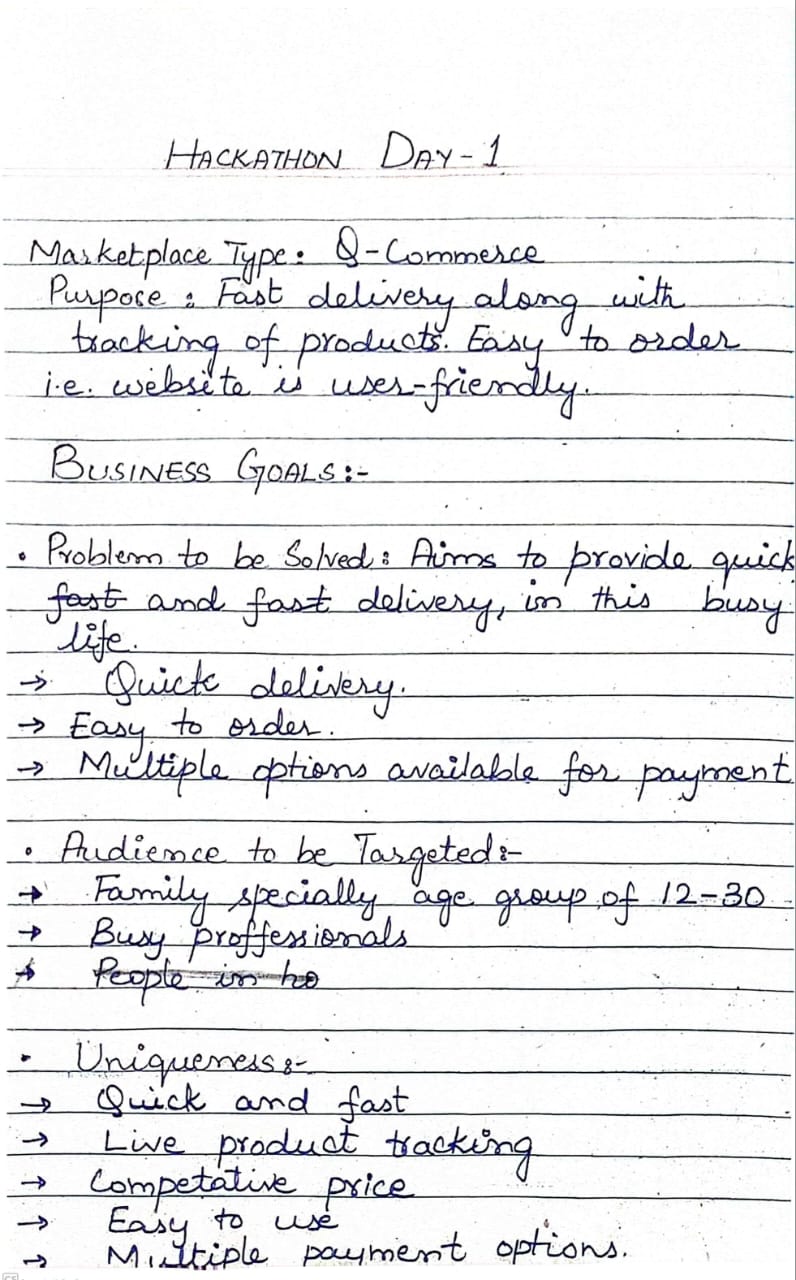 HACKATHON DAY-1
Marketplace Type: Q-Commerce
Purpose: Fast delivery along with
tracking of products. Easy to order
i.e. website is user-friendly.
BUSINESS GOALS:-
• Problem to be Solved: Aims to provide quick
fast and fast delivery, in this busy
life.
→ Quick delivery.
→ Easy to order.
→ Multiple options available for payment
• Audience to be Targeted:-
→ Family specially age group of 12-30
→ Busy proffessionals
→ People in ho
• Uniqueness:-
→ Quick and fast
→ Live product tracking
→ Competative price
→ Easy to use
→ Multiple payment options.
CS